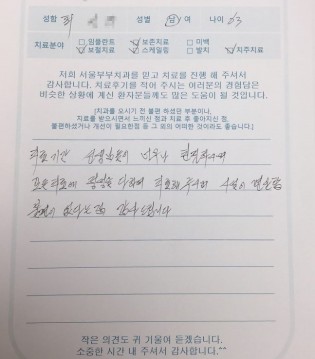 성함 최 성별 남 여 나이 63
치료분야 □임플란트 ☑보존치료 □미백
☑보철치료 ☑스케일링 □발치 ☑치주치료
저희 서울부부치과를 믿고 치료를 진행 해 주셔서
감사합니다. 치료후기를 적어 주시는 여러분의 경험담은
비슷한 상황에 계신 환자분들께도 많은 도움이 될 것입니다.
[치과를 오시기 전 불편 하셨던 부분이나,
치료를 받으시면서 느끼신 점과 치료 후 좋아지신 점,
불편하셨거나 개선이 필요한점 등 그 외의 어떠한 것이라도 좋습니다.]
치료기간 선생님들이 너무나 친절하시며
모든 치료에 최선을 다하여 치료해 주시며 시설이
불편이 없다는 점 감사 드립니다
작은 의견도 귀 기울여 듣겠습니다.
소중한 시간 내 주셔서 감사합니다.^^